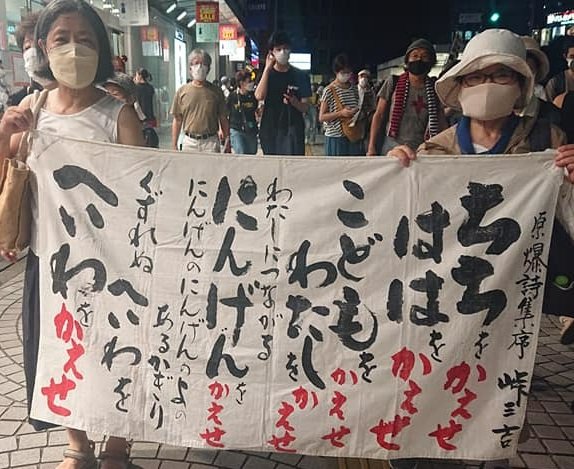 原爆詩集序 峠三吉
ちちをかえせ
ははをかえせ
こどもをかえせ
わたしをかえせ
わたしにつながる
にんげんをかえせ
にんげんのにんげんのよの
あるかぎり
くずれぬ
へいわを
へいわをかえせ
SALE